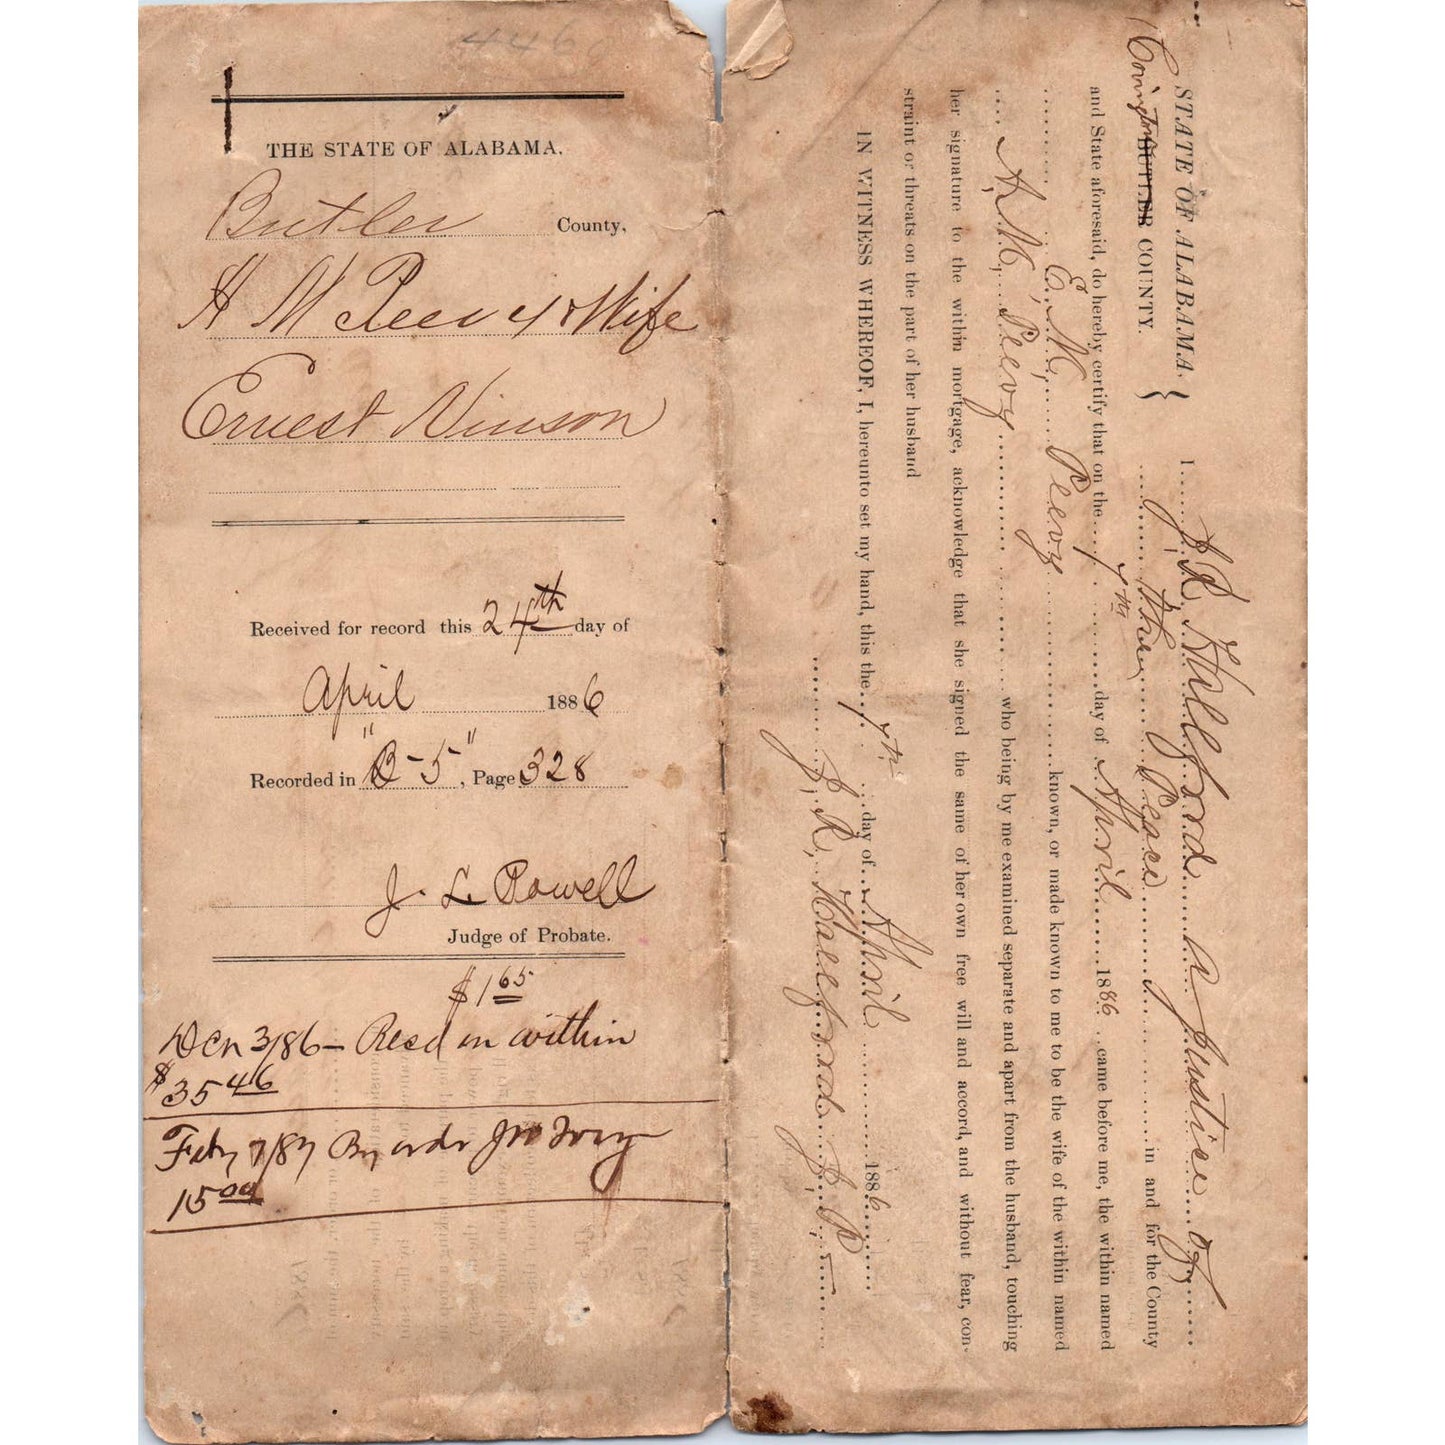 4460
THE STATE OF ALABAMA.
Butler County,
A M Peevy & Wife
Ernest Vinson
Received for record this 24th day of
April 1886
Recorded in "B-5", Page 328
J. L. Powell
Judge of Probate.
$1 65
Dec 3/86 - Recd on within
$35 46
Feby 7/87 By order Jno
15 00
STATE OF ALABAMA,
Covington BUTLER COUNTY.
I J, R, Hallford a Justice of
the Peace in and for the County
and State aforesaid, do hereby certify that on the 7th day of April 1886 came before me, the within named
E, M, Peevy known, or made known to me to be the wife of the within named
A, M, Peevy who being by me examined separate and apart from the husband, touching
her signature to the within mortgage, acknowledge that she signed the same of her own free will and accord, and without fear, con-
straint or threats on the part of her husband
IN WITNESS WHEREOF, I, hereunto set my hand, this the 7th day of April 1886
J, R, Hallford J, P,